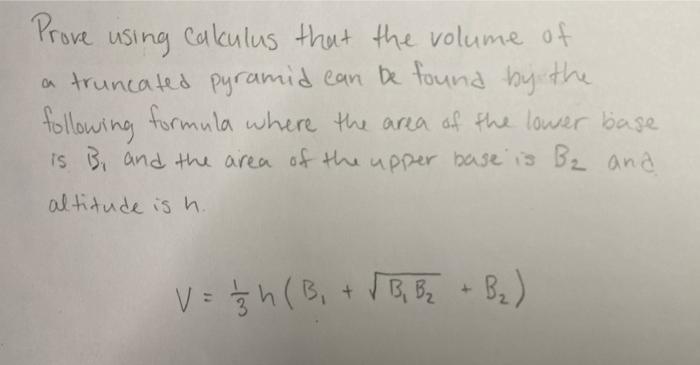 Prove using Calculus that the volume of
a truncated pyramid can be found by the
following formula where the area of the lower base
is B₁ and the area of the upper base is B₂ and
altitude is h.
V = 1/3 h (B₁ + √B₁B₂ + B₂)